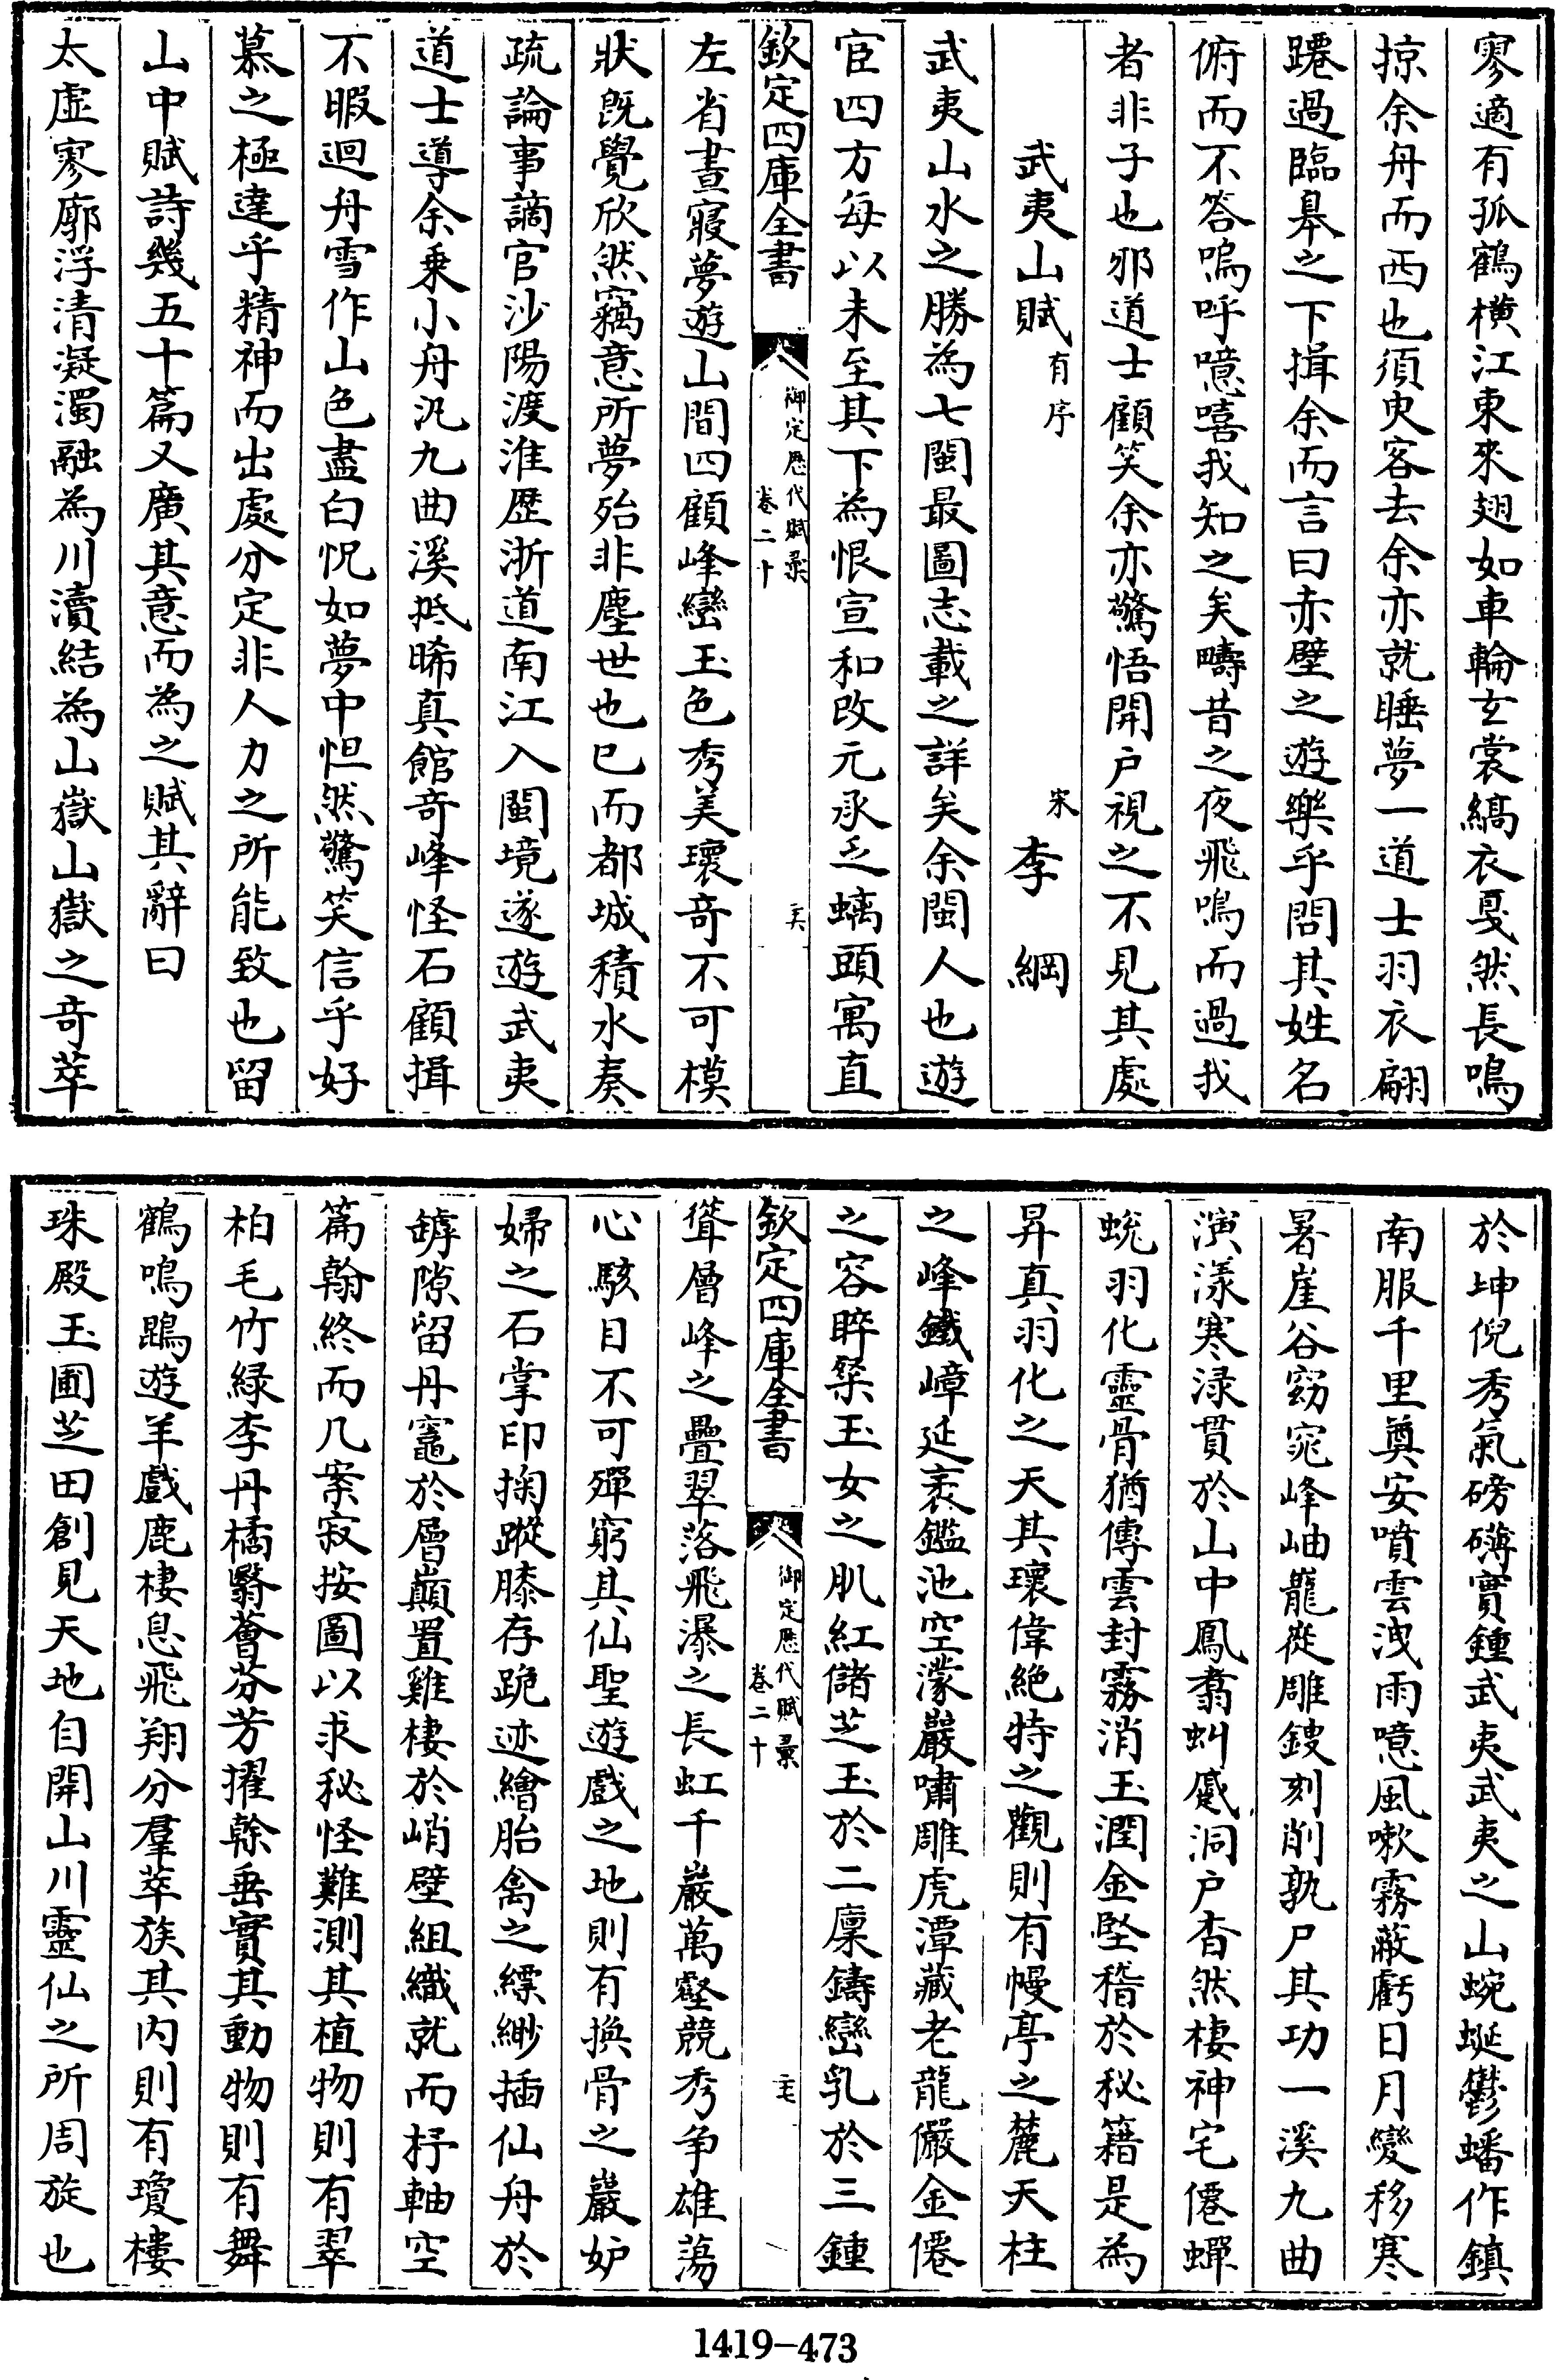 寥適有孤鶴横江東來翅如車輪玄裳縞衣戛然長鳴
掠余舟而西也須臾客去余亦就睡夢一道士羽衣翩
躚過臨臯之下揖余而言曰赤壁之遊樂乎問其姓名
俯而不答嗚呼噫嘻我知之矣疇昔之夜飛鳴而過我
者非子也邪道士顧笑余亦驚悟開户視之不見其處
武夷山賦有序 宋 李 綱
武夷山水之勝為七閩最圖志載之詳矣余閩人也遊
宦四方每以未至其下為恨宣和改元承乏螭頭寓直
欽定四庫全書 御定歴代賦彙 卷二十 二六
左省晝寢夢遊山間四顧峰巒玉色秀美瓌奇不可模
狀既覺欣然竊意所夢殆非塵世也已而都城積水奏
疏論事謫官沙陽渡淮歴浙道南江入閩境遂遊武夷
道士導余乗小舟汎九曲溪抵晞真館奇峰怪石顧揖
不暇迴舟雪作山色盡白怳如夢中怛然驚笑信乎好
慕之極達乎精神而出處分定非人力之所能致也留
山中賦詩幾五十篇又廣其意而為之賦其辭曰
太虚寥廓浮清凝濁融為川瀆結為山嶽山嶽之奇萃
於坤倪秀氣磅礴實鍾武夷武夷之山蜿蜒鬱蟠作鎮
南服千里奠安噴雲洩雨噫風嗽霧蔽虧日月變移寒
暑崖谷窈窕峰岫巃嵸雕鎪刻削孰尸其功一溪九曲
演漾寒渌貫於山中鳳翥虯蹙洞户杳然棲神宅僊蟬
蛻羽化靈骨猶傳雲封霧消玉潤金堅稽於秘籍是為
昇真羽化之天其瓌偉絶特之觀則有幔亭之麓天柱
之峰鐵嶂延袤鑑池空濛嚴嘯雕虎潭藏老龍儼金僊
之容睟粲玉女之肌紅儲芝玉於二廩鑄巒乳於三鍾
欽定四庫全書 御定歴代賦彙 卷二十 二七
聳層峰之疊翠落飛瀑之長虹千巖萬壑競秀争雄蕩
心駭目不可殫窮其仙聖遊戲之地則有换骨之巖妒
婦之石掌印掬蹤膝存跪迹繪胎禽之縹緲插仙舟於
罅隙留丹竈於層巔置雞棲於峭壁組織就而杼軸空
篇翰終而几案寂按圖以求秘怪難測其植物則有翠
柏毛竹緑李丹橘翳薈芬芳擢榦垂實其動物則有舞
鶴鳴鵾遊羊戲鹿棲息飛翔分羣萃族其内則有瓊樓
珠殿玉圃芝田創見天地自開山川靈仙之所周旋也
1419-473